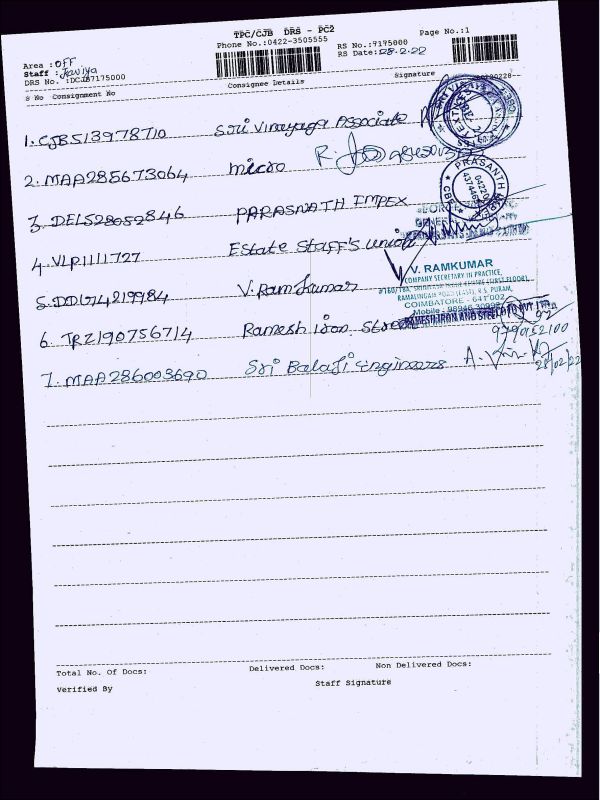 TPC/CJB DRS - PC2
Phone No.:0422-3505555
Page No.:1
RS No.:7175000
RS Date:28.2.22
Area : OFF
Staff : Jeviya
DRS No. :DCJB7175000
S No Consignment No Consignee Details Signature
20220228
1. CJB513978710 Sri Vinayaga Associate
2. MAA285673064 micro R.
3. DEL528052846 PARASNATH IMPEX
PRASANTH
4. VLP1111727 Estate Staff's union
V. RAMKUMAR
COMPANY SECRETARY IN PRACTICE,
5. DDU74219984 V. Ramkumar
RAMALINGAM ROAD (EAST), R.S. PURAM,
COIMBATORE - 641 002
6. TRZ190756714 Ramesh iron Steel
RAMESH IRON AND STEEL
7. MAA286003690 Sri Balaji Engineers
28/02/22
Total No. Of Docs: Delivered Docs: Non Delivered Docs:
Verified By Staff Signature